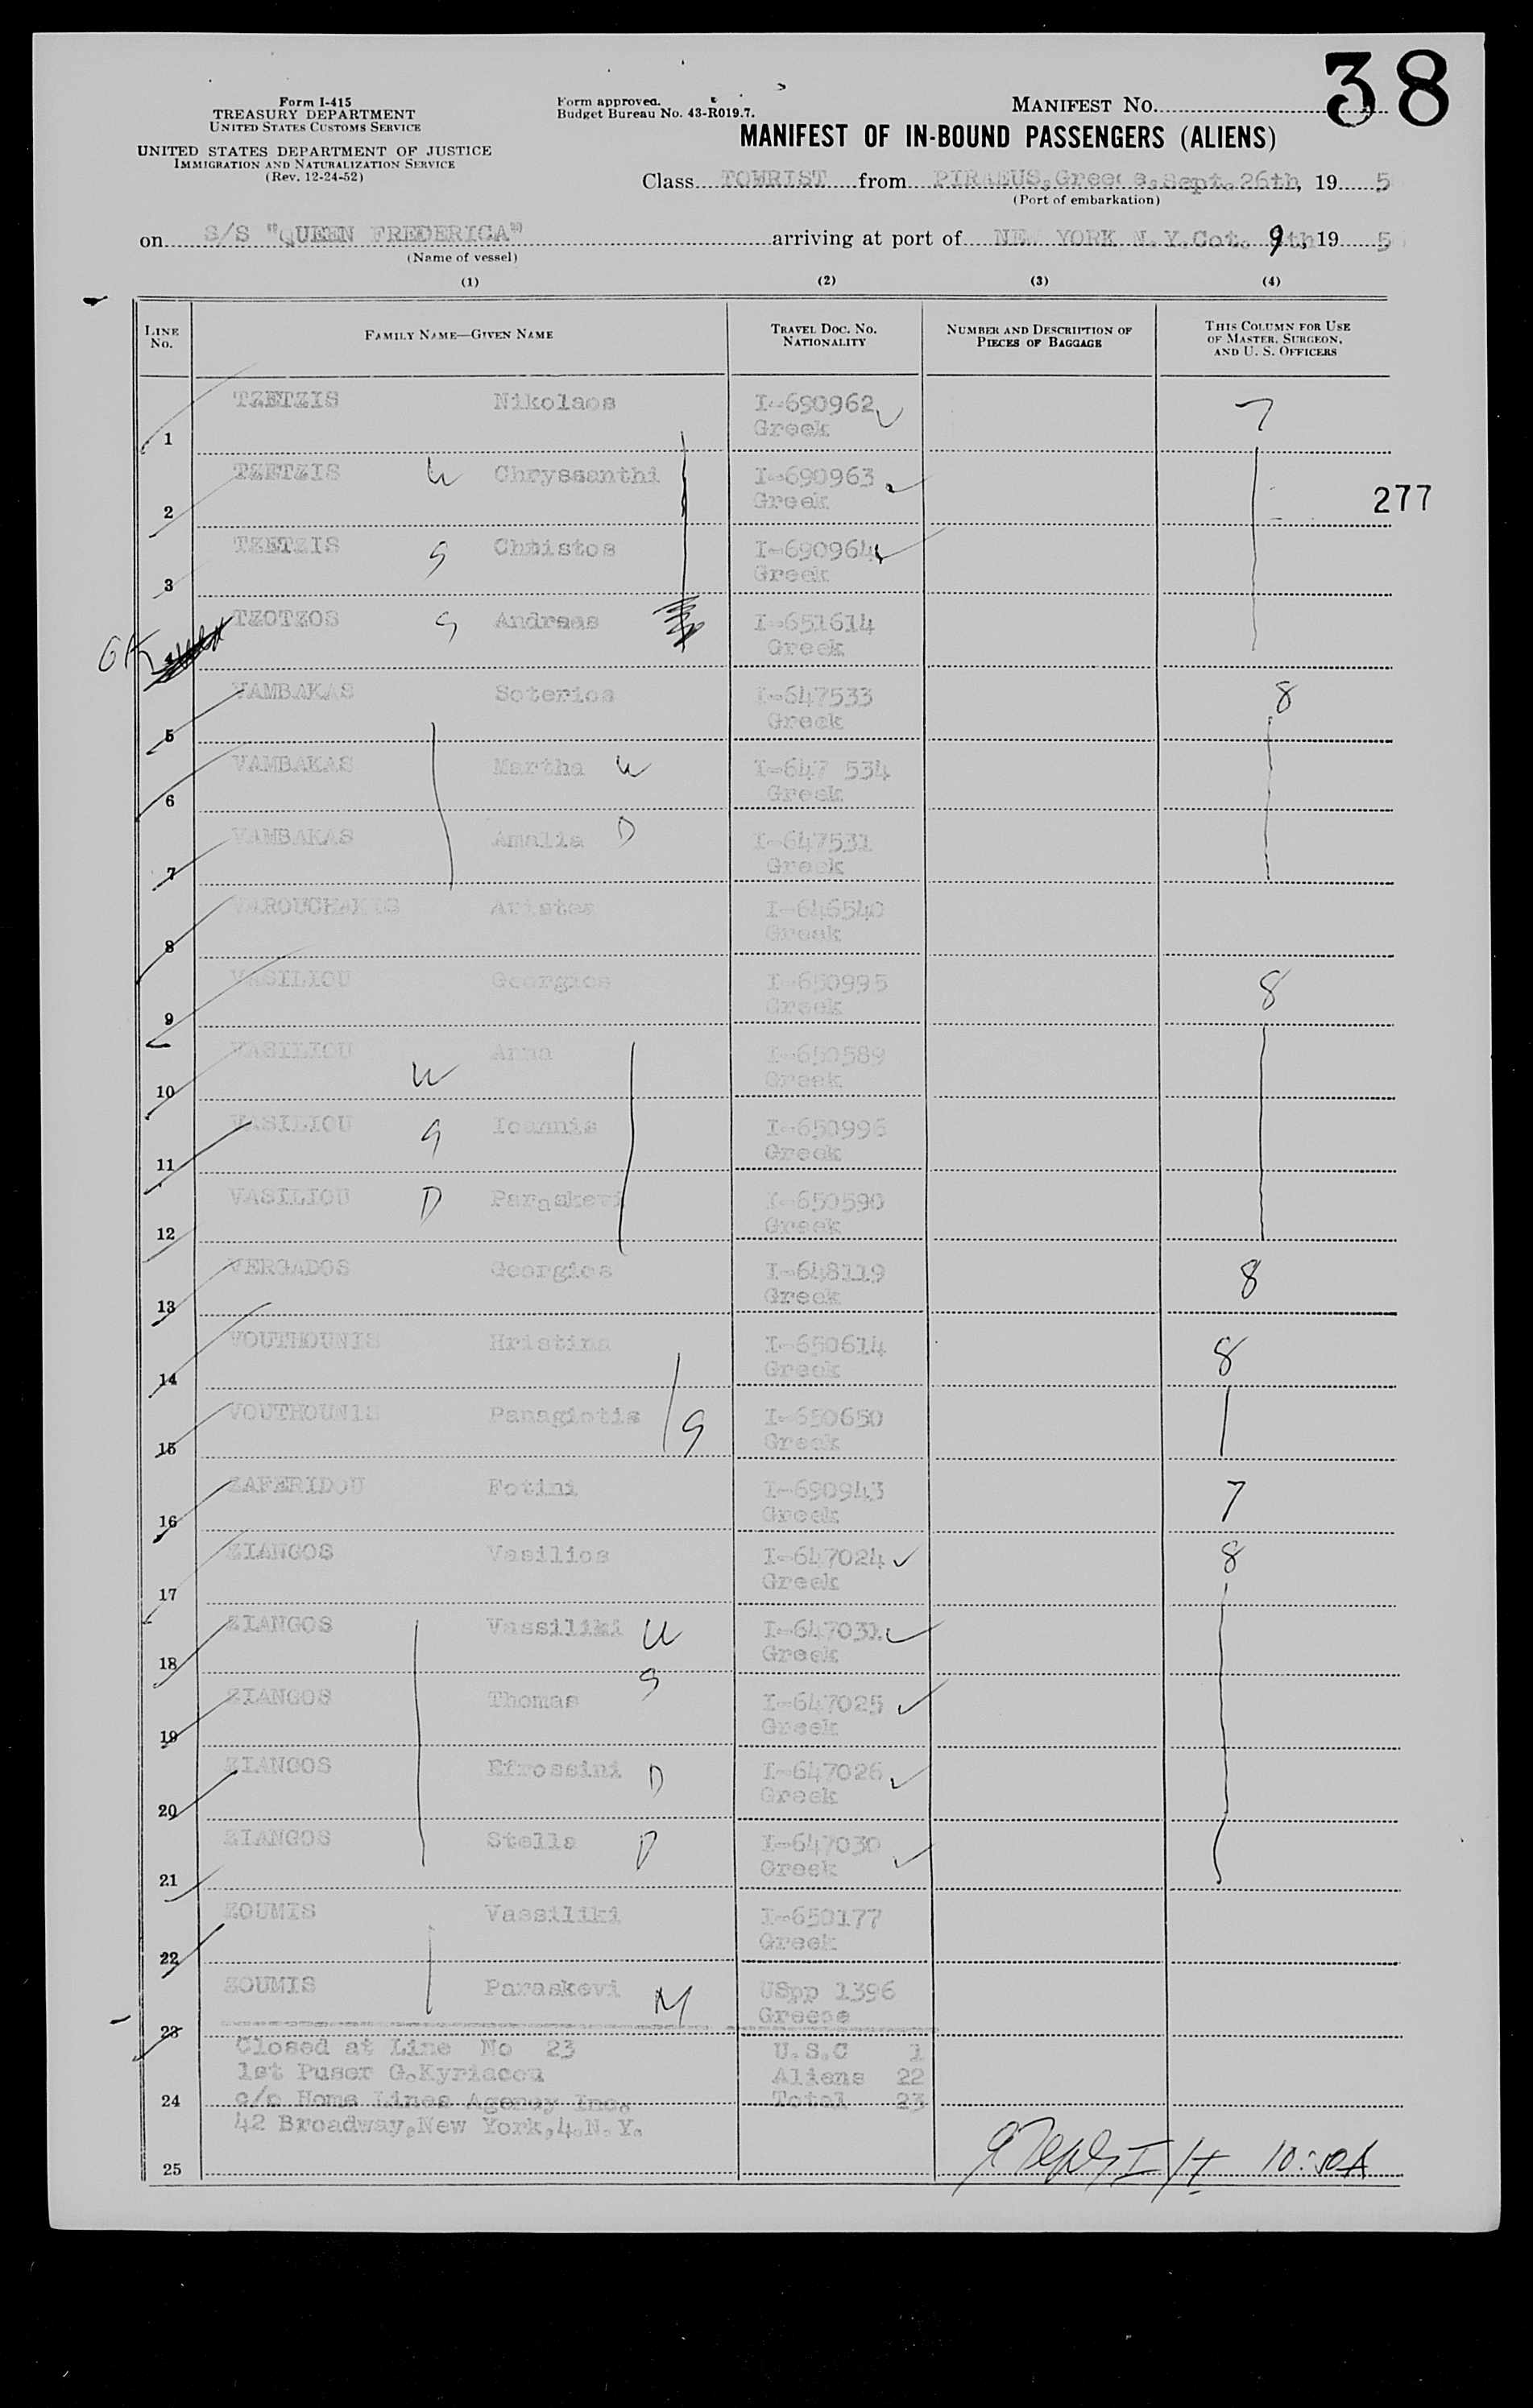 38
Form I-415
TREASURY DEPARTMENT
UNITED STATES CUSTOMS SERVICE
UNITED STATES DEPARTMENT OF JUSTICE
IMMIGRATION AND NATURALIZATION SERVICE
(Rev. 12-24-52)
Form approved.
Budget Bureau No. 43-R019.7.
MANIFEST NO.
MANIFEST OF IN-BOUND PASSENGERS (ALIENS)
Class TOWRIST from PIRAEUS, Greece, Sept. 26th, 19 5
(Port of embarkation)
on S/S "QUEEN FREDERICA" arriving at port of NEW YORK N.Y. Oct. 9 th, 19 5
(Name of vessel)
(1) (2) (3) (4)
LINE NO. FAMILY NAME—GIVEN NAME TRAVEL DOC. NO. NATIONALITY NUMBER AND DESCRIPTION OF PIECES OF BAGGAGE THIS COLUMN FOR USE OF MASTER, SURGEON, AND U. S. OFFICERS
1 TZETZIS Nikolaos I-690962 7
Greek
2 TZETZIS W Chryssanthi I-690963
Greek
277
3 TZETZIS S Christos I-690964
Greek
OK TZOTZOS S Andreas I-651614
Greek
5 VAMBAKAS Soterios I-647533 8
Greek
6 VAMBAKAS Martha W I-647 534
Greek
7 VAMBAKAS Amalia D I-647531
Greek
8 VAROUCHAKIS Aristea I-646540
Greek
9 VASILIOU Georgios I-650995 8
Greek
10 VASILIOU W Anna I-650589
Greek
11 VASILIOU S Ioannis I-650996
Greek
12 VASILIOU D Paraskevi I-650590
Greek
13 VERGADOS Georgios I-648119 8
Greek
14 VOUTHOUNIS Hristina I-650614 8
Greek
15 VOUTHOUNIS Panagiotis S I-650650
Greek
16 ZAFERIDOU Fotini I-690943 7
Greek
17 ZIANGOS Vasilios I-647024 8
Greek
18 ZIANGOS Vassiliki W I-647031
Greek
19 ZIANGOS Thomas S I-647025
Greek
20 ZIANGOS Efrossini D I-647026
Greek
21 ZIANGOS Stella D I-647030
Greek
22 ZOUMIS Vassiliki I-650177
Greek
23 ZOUMIS Paraskevi M USpp 1396
Greece
Closed at Line No 23 U.S.C 1
1st Puser G.Kyriacou Aliens 22
24 c/o Home Lines Agency Inc. Total 23
42 Broadway, New York, 4. N.Y.
25